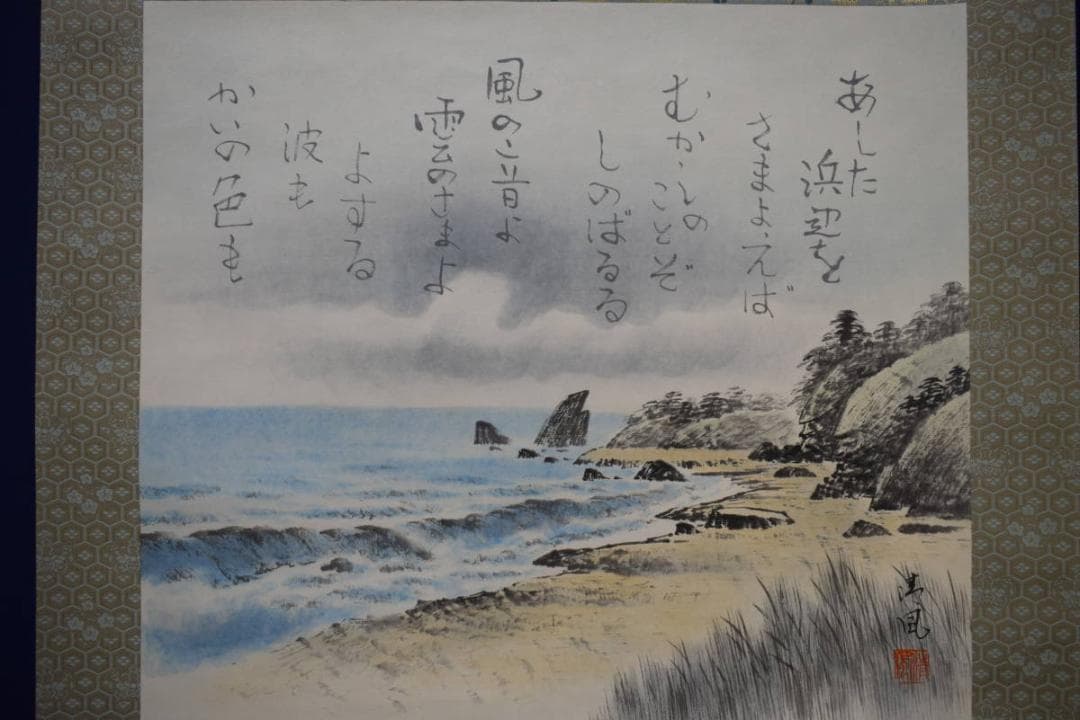 あした
浜辺を
さまよえば
むかしの
ことぞ
しのばるる
風の音よ
雲のさまよ
よする
波も
かいの色も